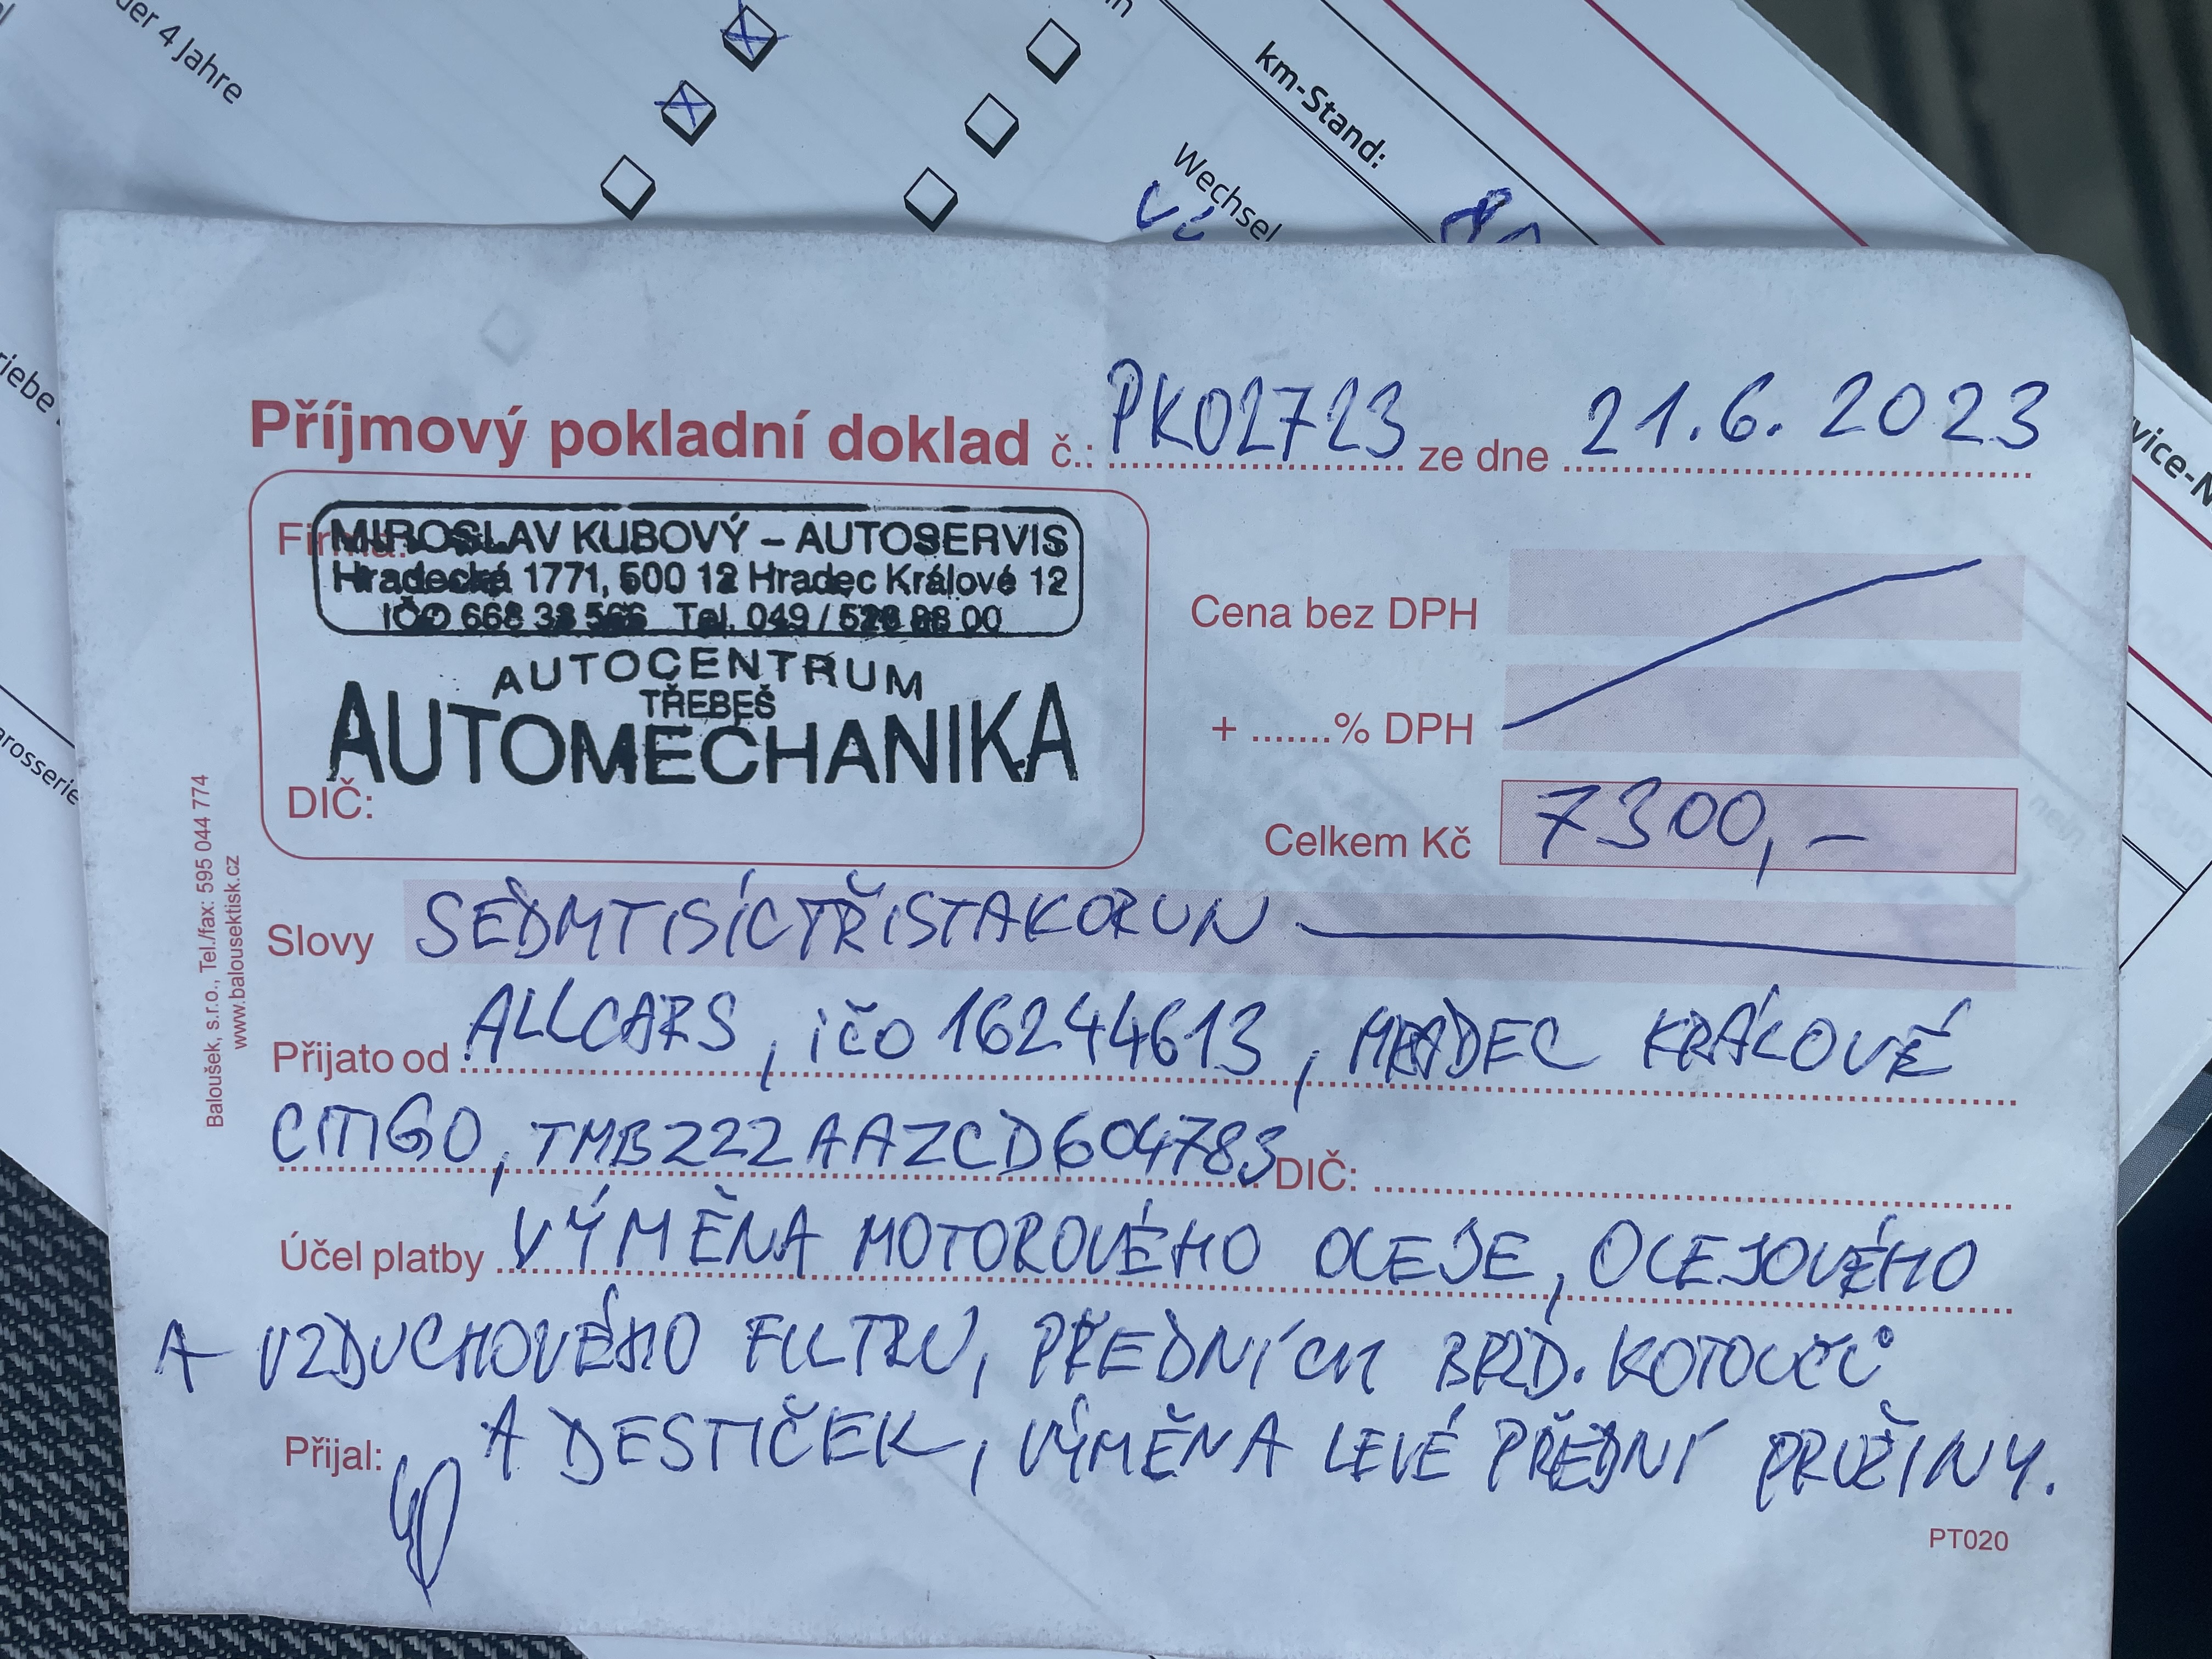 der 4 Jahre
km-Stand:
Wechsel
Příjmový pokladní doklad č.: PK02723 ze dne 21.6.2023
Firma:
MIROSLAV KUBOVÝ – AUTOSERVIS
Hradecká 1771, 500 12 Hradec Králové 12
IČO 668 38 566 Tel. 049 /
AUTOCENTRUM
TŘEBEŠ
AUTOMECHANIKA
DIČ:
Cena bez DPH
+ .......% DPH
Celkem Kč 7300,–
Slovy SEDMTISÍCTŘISTAKORUN
Přijato od ALLCARS, IČO 16244613, HRADEC KRÁLOVÉ
CITIGO, TMBZZZAAZCD604783 DIČ:
Účel platby VÝMĚNA MOTOROVÉHO OLEJE, OLEJOVÉHO
A VZDUCHOVÉHO FILTRU, PŘEDNÍCH BRZD. KOTOUČŮ
Přijal: A DESTIČEK, VÝMĚNA LEVÉ PŘEDNÍ PRUŽINY.
PT020
Baloušek, s.r.o., Tel./fax: 595 044 774
www.balousektisk.cz
nein